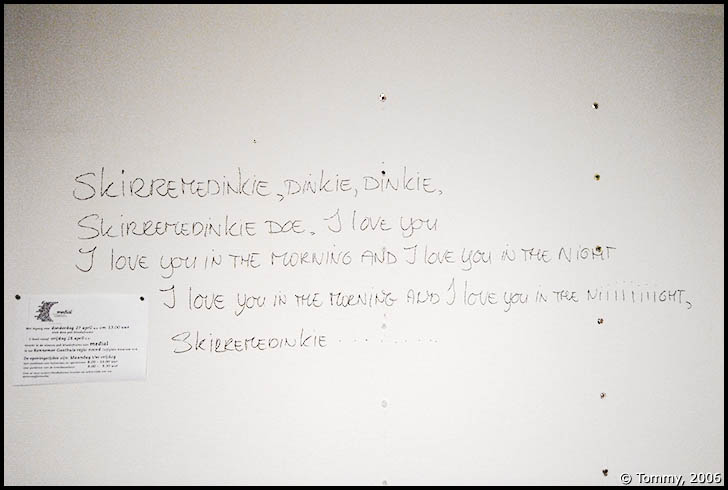 SKIRREMEDINKIE, DINKIE, DINKIE,
SKIRREMEDINKIE DOE, I love you
I love you in the morning and I love you in the night
I love you in the morning and I love you in the niiiiiiight,
SKIRREMEDINKIE .........
medial
donderdag 27 april om 13.00 uur
vrijdag 28 april
medial
De openingstijden zijn: Maandag t/m vrijdag
© Tommy, 2006